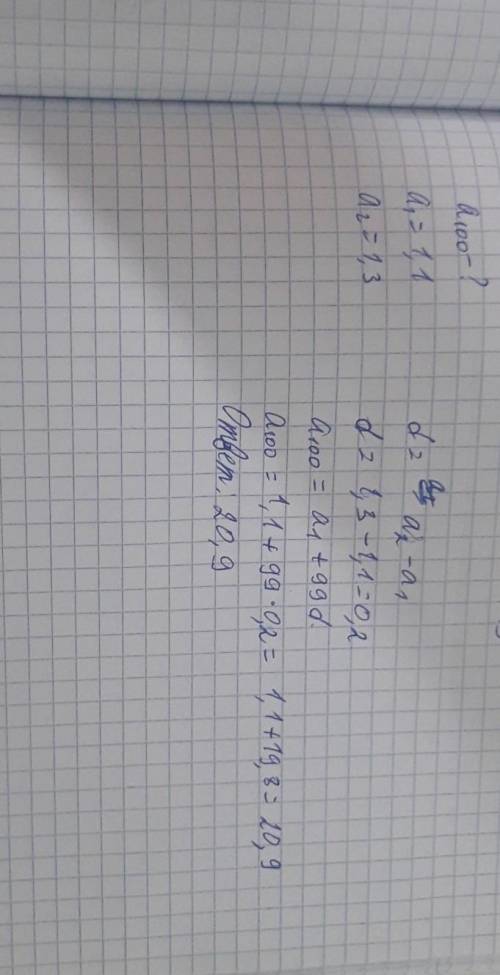 a₁₀₀-?
a₁ = 1,1
a₂ = 1,3
d = a₂ - a₁
d = 1,3 - 1,1 = 0,2
a₁₀₀ = a₁ + 99d
a₁₀₀ = 1,1 + 99 · 0,2 = 1,1 + 19,8 = 20,9
Ответ: 20,9